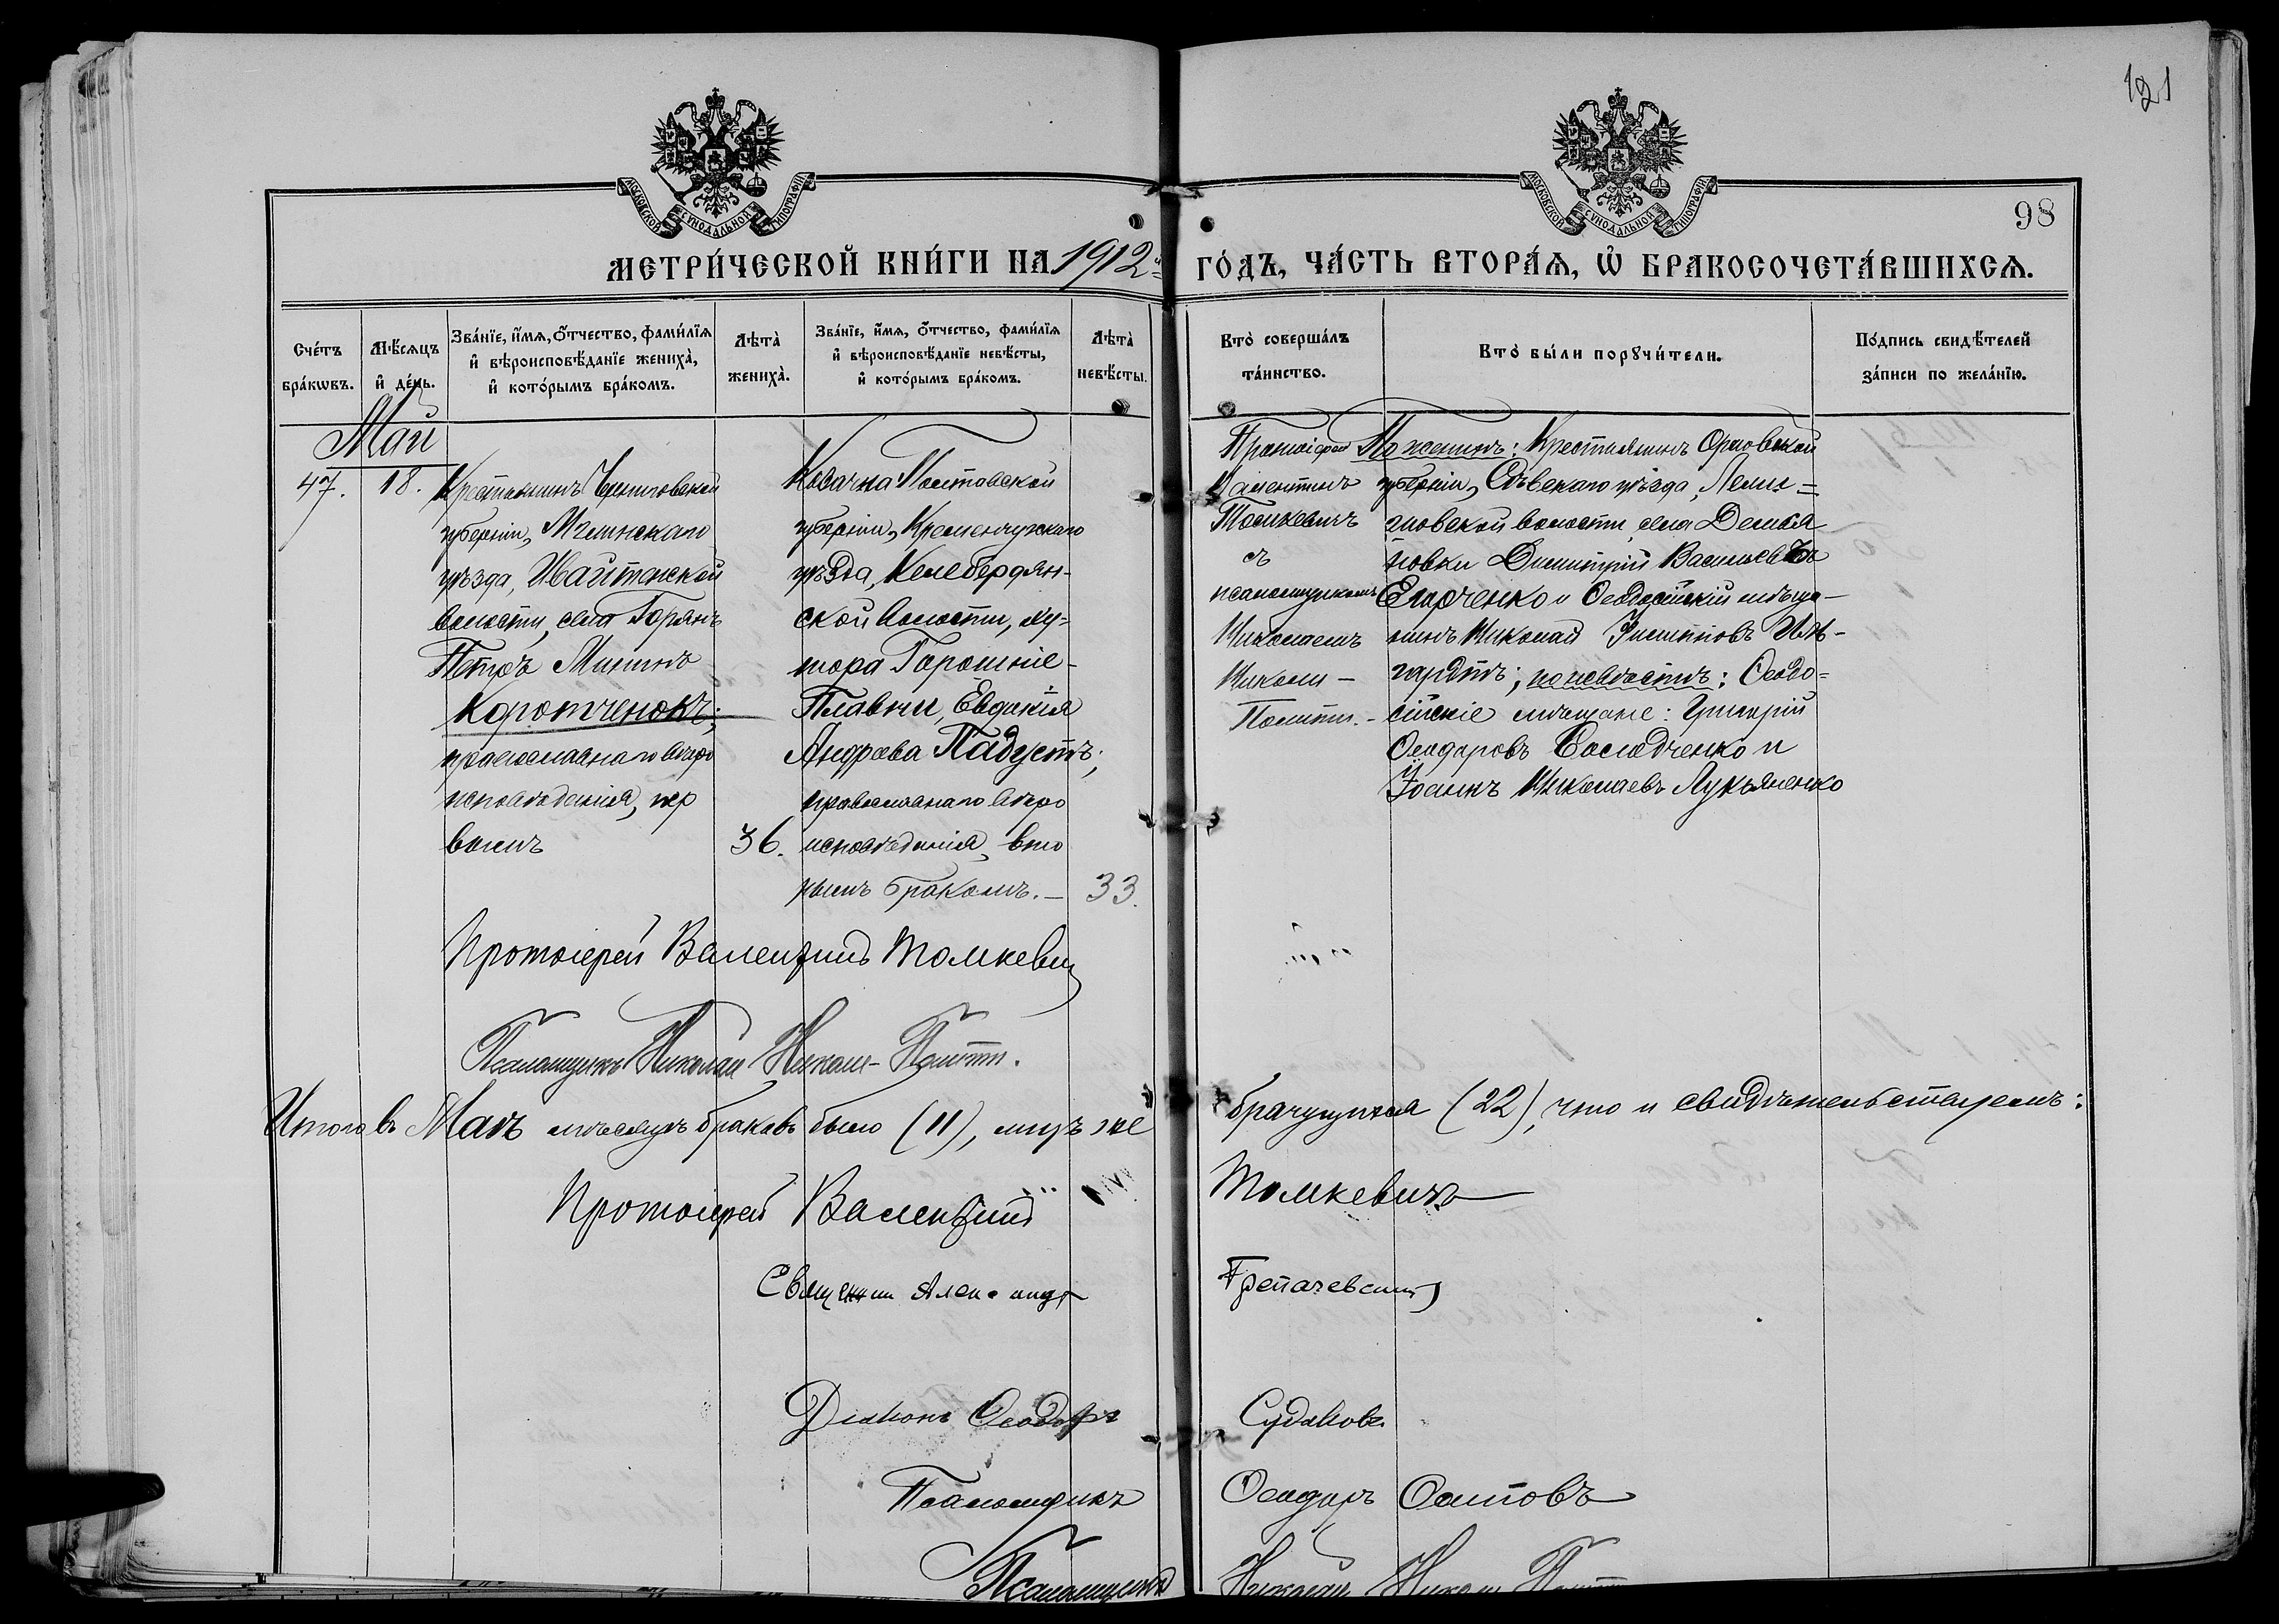 121
МОСКОВСКОЙ СѴНОДАЛЬНОЙ ТИПОГРАФІИ
МОСКОВСКОЙ СѴНОДАЛЬНОЙ ТИПОГРАФІИ
98
МЕТРИ́ЧЕСКОЙ КНИ́ГИ НА 1912й ГО́ДЪ, ЧА́СТЬ ВТОРА́Ѧ, Ѡ҆ БРАКОСОЧЕТА́ВШИХСѦ.
Сче́тъ
бра́кѡвъ.
Мѣ́сѧцъ
и҆ де́нь.
Зва́нїе, и҆́мѧ, ѻ҆́тчество, фами́лїѧ
и҆ вѣроисповѣ́данїе жениха̀,
и҆ кото́рымъ бра́комъ.
Лѣта̀
жениха̀.
Зва́нїе, и҆́мѧ, ѻ҆́тчество, фами́лїѧ
и҆ вѣроисповѣ́данїе невѣ́сты,
и҆ кото́рымъ бра́комъ.
Лѣта̀
невѣ́сты.
Кто̀ соверша́лъ
та́инство.
Кто̀ бы́ли порꙋчи́тели.
По́дпись свидѣ́телей
за́писи по жела́нїю.
Май
47.
18.
Крестьянинъ Черниговской
губерніи, Мглинскаго
уѣзда, Ивайтенской
волости, села Горянъ
Петръ Мининъ
Коротченокъ;
православнаго вѣро
исповѣданія, пер
вымъ
36.
Козачка Полтавской
губерніи, Кременчугскаго
уѣзда, Келебердян-
ской волости, ху=
тора Горошкіе-
Плавни, Евдокія
Андреева Падустъ;
православнаго вѣро
исповѣданія, вто
рымъ бракомъ.—
33.
Протоіерей
Валентинъ
Томкевичъ
съ
псаломщикомъ
Николаемъ
Николи-
Политти.-
По женихѣ: Крестьянинъ Орловской
губерніи, Сѣвскаго уѣзда,
волости, села Демья
новки Димитрій Васильевъ
Егорченко и Ѳеодосійскій мѣща-
нинъ Николай
по невѣстѣ: Ѳеодо=
сійскіе мѣщане: Григорій
Ѳеодоровъ и
Іоаннъ Николаевъ Лукьяненко
Протоіерей Валентинъ Томкевич
Псаломщикъ Николай Николи-Политти.
Итого въ Маѣ мѣсяцѣ браковъ было (11), лицъ же брачущихся (22), что и свидѣтельствуемъ:
Протоіерей Валентинъ Томкевичъ
Священник Александр
Діаконъ Ѳеодоръ Судаковъ
Псаломщикъ Ѳеодоръ
Псаломщикъ Николай Николи